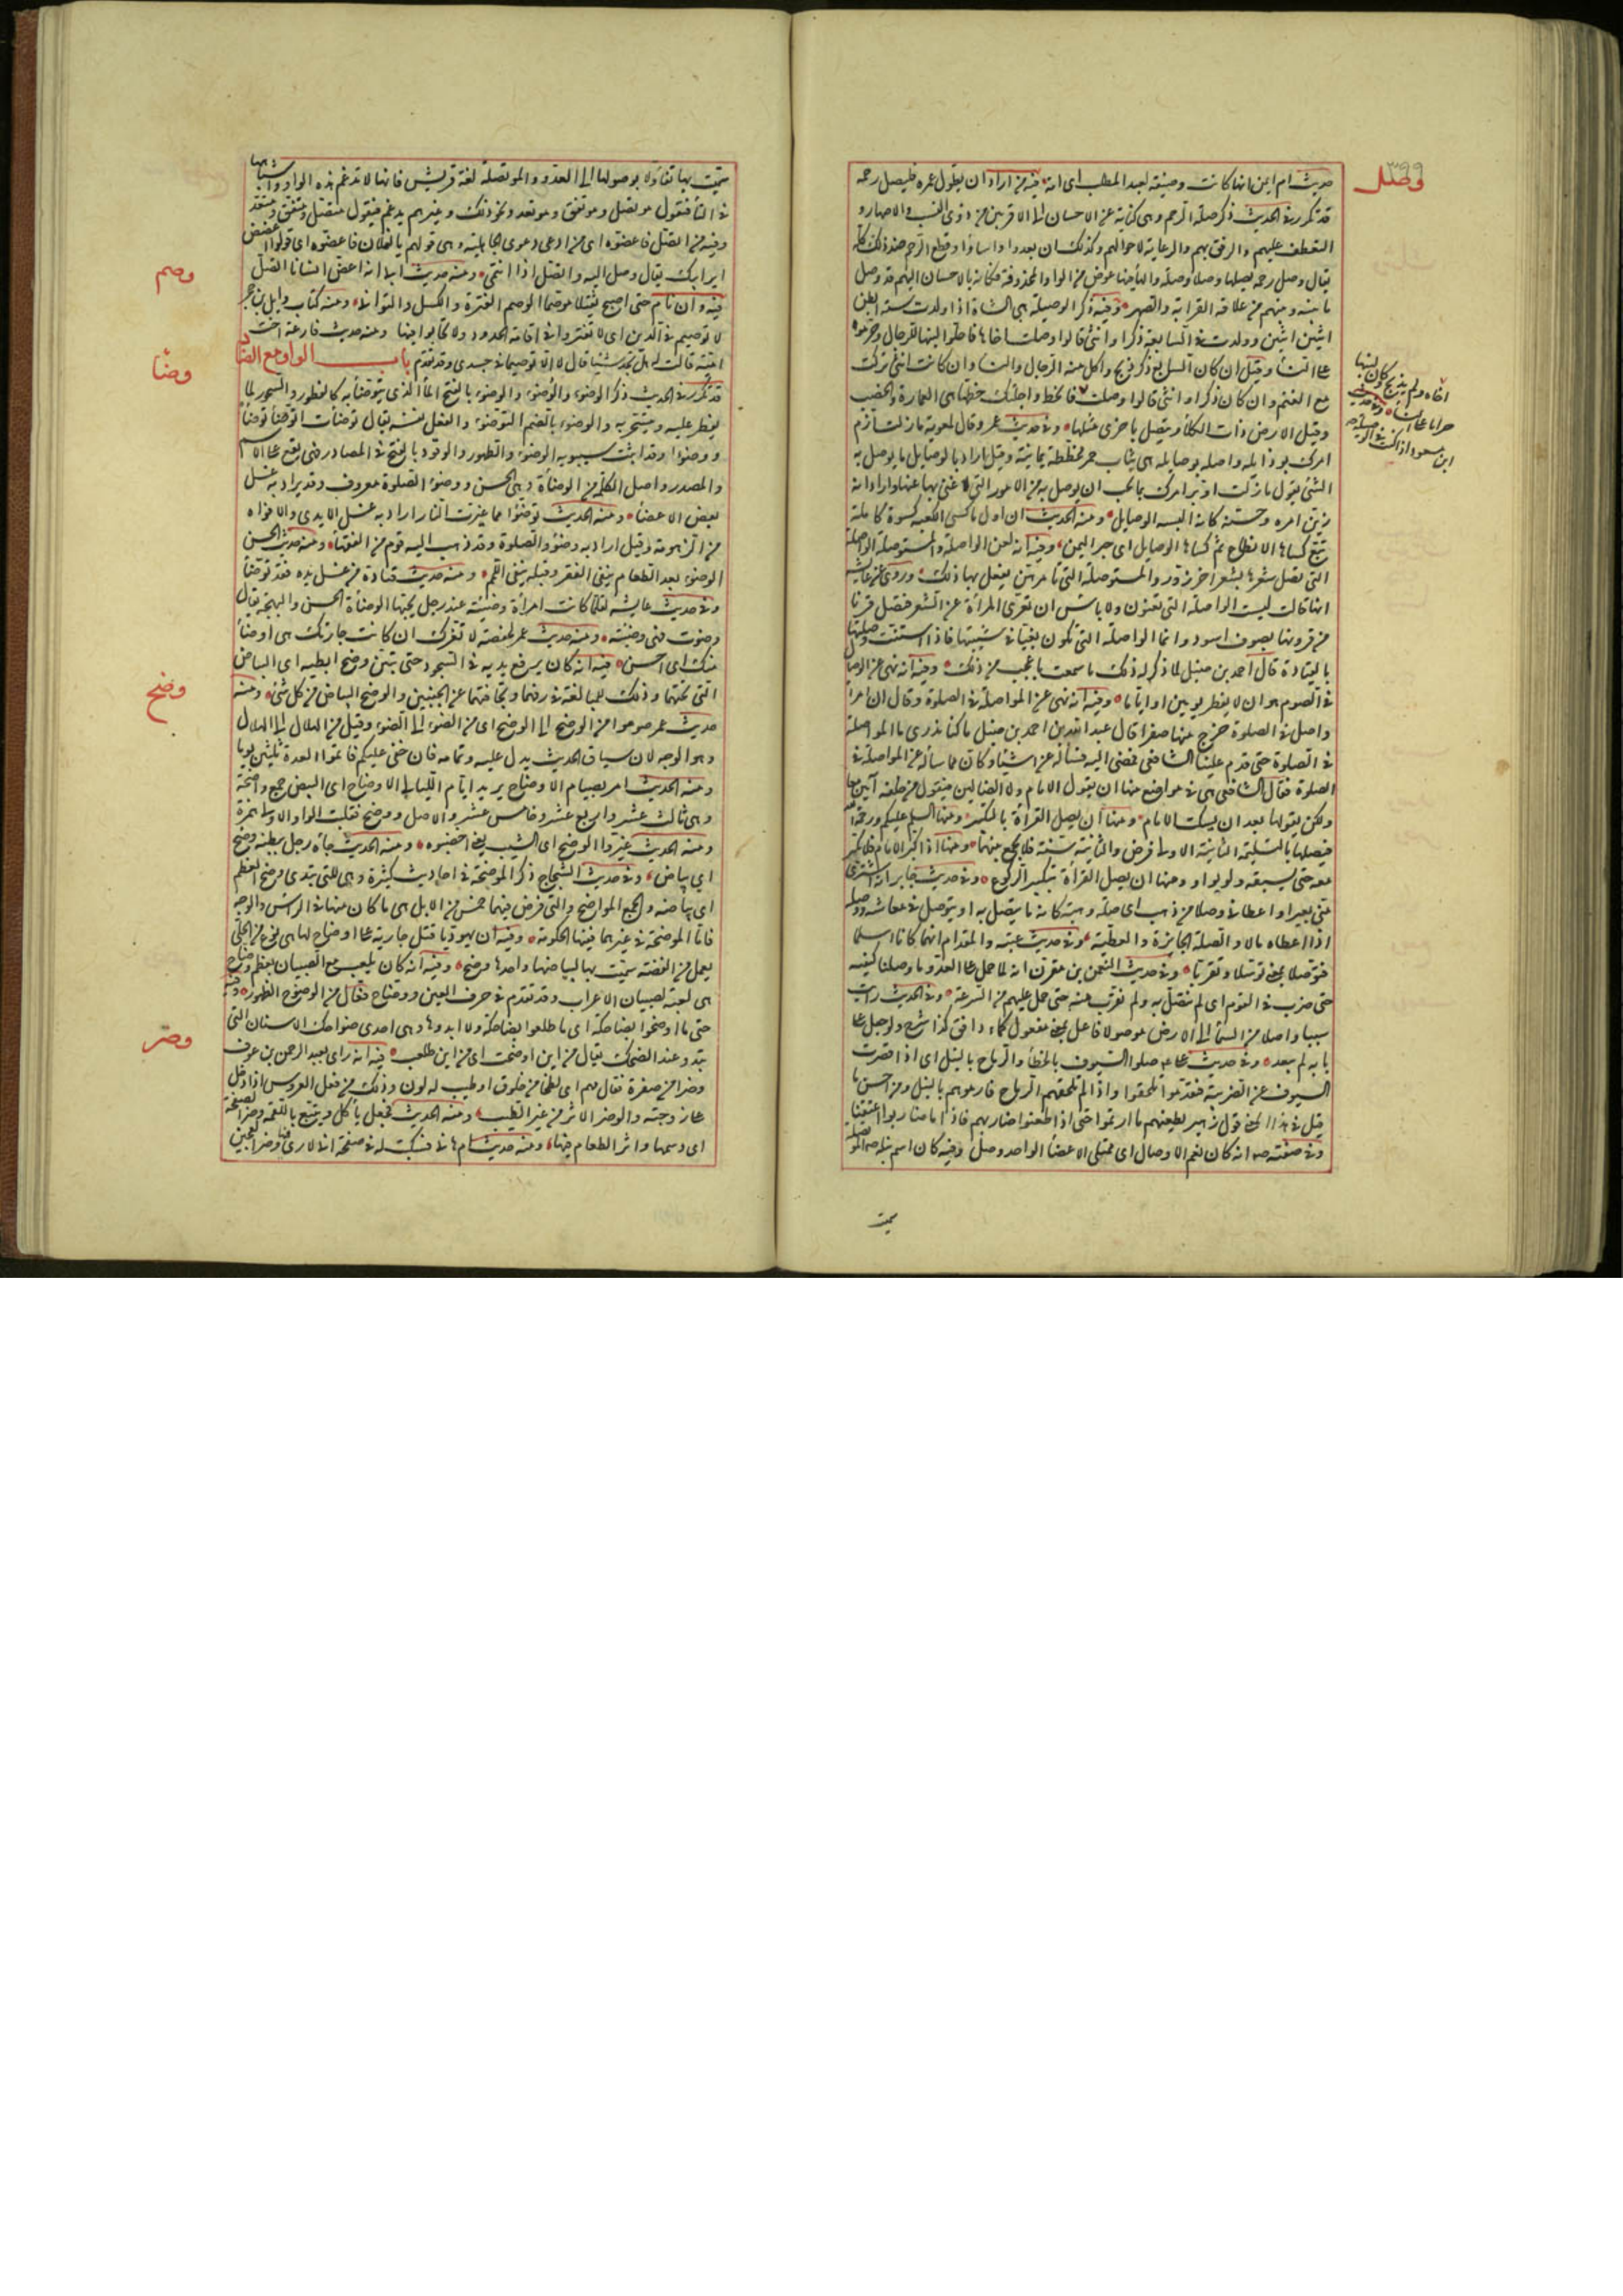 وصل
حديث ام ايمن انها كانت وصيفة لعبد المطلب اى امة فيه من اراد ان يطول عمره فليصل رحمه
قد تكرر فى الحديث ذكر صلة الرحم وهى كناية عن الاحسان الى الاقربين من ذوى النسب والاصهار و
التعطف عليهم والرفق بهم والرعاية لاحوالهم وكذلك ان بعدوا واساؤا وقطع الرحم ضد ذلك كله
يقال وصل رحمه يصلها وصلا وصلة والهاء فيها عوض من الواو المحذوفة فكانه بالاحسان اليهم قد وصل
ما بينه وبينهم من علاقة القرابة والصهر وفيه ذكر الوصيلة هى الشاة اذا ولدت ستة ابطن
اثنين اثنين وولدت فى السابعة ذكرا وانثى قالوا وصلت اخاها فاحلوا لبنها للرجال وحرموه
على النساء وقيل ان كان السابع ذكر ذبح واكل منه الرجال والنساء وان كانت انثى تركت
مع الغنم وان كان ذكرا وانثى قالوا وصلت
اخاه ولم يذبح وكان لبنها
حراما على النساء وفى حديث
ابن مسعود اذا كنت فى الوصيلة
فاعط راحلتك حظها هى العمارة والخصب
وقيل الارض ذات الكلاء تتصل باخرى مثلها وفى حديث عمرو قال لمعوية ما زلت ارم
امرك بوذايله واصله بوصايله هى ثياب حمر مخططة يمانية وقيل اراد بالوصايل ما يوصل به
الشئ يقول ما زلت ادبر امرك بما يجب ان يوصل به من الامور التى لا غنى بها عنها او اراد انه
زين امره وحسنه كانه البسه الوصايل ومنه الحديث ان اول ما كسى الكعبة كسوة كاملة
تبع كساها الانطاع ثم كساها الوصايل اى حبر اليمن وفيه انه لعن الواصلة والمستوصلة الواصلة
التى تصل شعرها بشعر اخر زور والمستوصلة التى تامر من يفعل بها ذلك وروى عن عايشة
انها قالت ليست الواصلة التى تعنون ولا باس ان تعرى المراة عن الشعر فتصل قرنا
من قرونها بصوف اسود وانما الواصلة التى تكون بغيا فى شبيبتها فاذا اسنت وصلتها
بالقيادة قال احمد بن حنبل لما ذكر له ذلك ما سمعت باعجب من ذلك وفيه انه نهى عن الوصال
فى الصوم هو ان لا يفطر يومين او اياما وفيه انه نهى عن المواصلة فى الصلوة وقال ان امرا
واصل فى الصلوة خرج منها صفرا قال عبد الله بن احمد بن حنبل ما كنا ندرى ما المواصلة
فى الصلوة حتى قدم علينا الشافعى فمضى اليه فساله عن اشياء وكان مما ساله عن المواصلة فى
الصلوة فقال الشافعى هى فى مواضع منها ان يقول الامام ولا الضالين فيقول من خلفه آمين معا
ولكن يقولها بعد ان يسكت الامام ومنها ان يصل القراة بالتكبير ومنها السلم عليكم ورحمة الله
فيصلها بالتسليمة الثانية الاولى فرض والثانية سنة فلا يجمع بينهما ومنها اذا كبر الامام فلا يكبر
معه حتى يسبقه ولو بواو ومنها ان يصل القراة بتكبير الركوع وفى حديث جابر انه اشترى
منى بعيرا واعطانى وصلا من ذهب اى صلة وهبة كانه ما يتصل به او يتوصل فى معاشه ووصله
اذا اعطاه مالا والصلة الجايزة والعطية وفى حديث عتبة والمقدام انهما كانا اسلما
فتوصلا بمعنى توسلا وتقربا وفى حديث النعمن بن مقرن انه لما حمل على العدو ما وصلنا كتفيه
حتى ضرب فى القوم اى لم نتصل به ولم نقرب منه حتى حمل عليهم من السرعة وفى الحديث رايت
سببا واصلا من السماء الى الارض موصولا فاعل بمعنى مفعول كماء دافق كذا شرح ولو جعل على
بابه لم يبعد وفى حديث على صلوا السيوف بالخطا والرماح بالنبل اى اذا قصرت
السيوف عن الضريبة فتقدموا تلحقوا واذا لم تلحقهم الرماح فارموهم بالنبل ومن احسن ما
قيل فى هذا المعنى قول زهير يطعنهم ما ارتموا حتى اذا طعنوا ضاربهم فاذا ما ضاربوا اعتنقا
وفى صفته انه كان فعم الاوصال اى ممتلى الاعضاء الواحد وصل وفيه كان اسم نبله الموتصلة
سميت
سميت بها تفاؤلا بوصولها الى العدو والموتصلة لغة قريش فانها لا تدغم هذه الواو واشباهها
فى التاء فتقول موتصل وموتفق وموتعد ونحو ذلك وغيرهم يدغم فيقول متصل ومتفق ومتعد
وفيه من اتصل فاعضوه اى من ادعى دعوى الجاهلية وهى قولهم يا لفلان فاعضوه اى قولوا اعضض
اير ابيك يقال وصل اليه واتصل اذا انتمى ومنه حديث ابى انه اعض انسانا اتصل
وصم
فيه وان نام حتى اصبح ثقيلا موصما الوصم الفترة والكسل والتوانى ومنه كتاب وايل بن حجر
لا توصيم فى الدين اى لا تفتروا فى اقامة الحدود ولا تحابوا فيها ومنه حديث فارعة اخت
امية قالت له هل تجد شيئا قال لا الا توصيما فى جسدى وقد تقدم باب الواو مع الضاد
وضأ
قد تكرر فى الحديث ذكر الوضوء والوضوء والوضوء بالفتح الماء الذى يتوضأ به كالفطور والسحور لما
يفطر عليه ويتسحر به والوضوء بالضم التوضئ والفعل نفسه يقال توضأت اتوضأ توضأ
ووضوءا وقد اثبت سيبويه الوضوء والطهور والوقود بالفتح فى المصادر فهى تقع على الاسم
والمصدر واصل الكلمة من الوضاءة وهى الحسن ووضوء الصلوة معروف وقد يراد به غسل
بعض الاعضاء ومنه الحديث توضؤا مما غيرت النار اراد به غسل الايدى والافواه
من الزهومة وقيل اراد به وضوء الصلوة وقد ذهب اليه قوم من الفقهاء ومنه حديث الحسن
الوضوء بعد الطعام ينفى الفقر وقبله ينفى اللمم ومنه حديث قتادة من غسل يده فقد توضأ
وفى حديث عايشة لقلما كانت امرأة وضيئة عند رجل يحبها الوضاءة الحسن والبهجة يقال
وضوت فهى وضيئة ومنه حديث عمر لحفصة لا تغرك ان كانت جارتك هى اوضأ
وضح
منك اى احسن فيه انه كان يرفع يديه فى السجود حتى يتبين وضح ابطيه اى البياض
التى تحتهما وذلك للمبالغة فى رفعهما وتجافيهما عن الجنبين والوضح البياض من كل شئ ومنه
حديث عمر صوموا من الوضح الى الوضح اى من الضوء الى الضوء وقيل من الهلال الى الهلال
وهو الوجه لان سياق الحديث يدل عليه وتمامه فان خفى عليكم فاتموا العدة ثلثين يوما
ومنه الحديث امر بصيام الاواضح يريد ايام الليالى الاواضح اى البيض جمع واضحة
وهى ثالث عشر ورابع عشر وخامس عشر والاصل وواضح فقلبت الواو الاولى همزة
ومنه الحديث غيروا الوضح اى الشيب يعنى اخضبوه ومنه الحديث جاءه رجل بكفه وضح
اى بياض وفى حديث الشجاج ذكر الموضحة فى احاديث كثيرة وهى التى تبدى وضح العظم
اى بياضه والجمع المواضح والتى فرض فيها خمس من الابل هى ما كان منها فى الراس والوجه
فاما الموضحة فى غيرهما ففيها الحكومة وفيه ان يهوديا قتل جارية على اوضاح لها هى نوع من الحلى
يعمل من الفضة سميت بها لبياضها واحدها وضح وفيه انه كان يلعب مع الصبيان بعظم وضاح
هى لعبة لصبيان الاعراب وقد تقدم فى حرف العين ووضاح فعال من الوضوح الظهور وفيه
حتى ما اوضحوا بضاحكة اى ما طلعوا بضاحكة ولا ابدوها وهى احدى ضواحك الاسنان التى
وضر
تبدو عند الضحك يقال من اين اوضحت اى من اين طلعت فيه انه راى بعبد الرحمن بن عوف
وضرا من صفرة فقال مهيم اى لطخا من خلوق او طيب له لون وذلك من فعل العروس اذا دخل
على زوجته والوضر الاثر من غير الطيب ومنه الحديث فجعل ياكل ويتتبع باللقمة وضر الصحفة
اى دسمها واثر الطعام فيها ومنه حديث ام هانئ فسكبت له فى صحفة انى لارى فيها وضر العجين